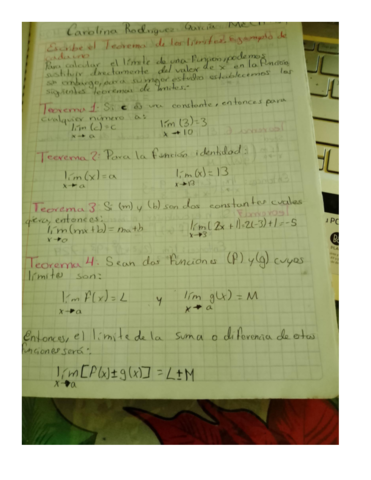 Carolina Rodriguez García
Escribe el Teorema de los límites y ejemplo de
cada uno
Para calcular el límite de una función podemos
sustituir directamente del valor de x en la función
sin embargo para mayor estudio establecemos los
siguientes teoremas de límites:
Teorema 1: Si c es una constante, entonces para
cualquier número a:
lim (c) = c lim (3) = 3
x→a x→10
Teorema 2: Para la función identidad:
lim (x) = a lim (x) = 13
x→a x→13
Teorema 3: Si (m) y (b) son dos constantes
entonces:
lim (mx+b) = ma+b lim (2x+1) = 2(-3)+1 = -5
Teorema 4: Sean dos Funciones (f) y (g) cuyos
límites son:
lim f(x) = L y lim g(x) = M
x→a x→a
Entonces, el límite de la suma o diferencia de
funciones será:
lim [f(x) ± g(x)] = L ± M
x→a